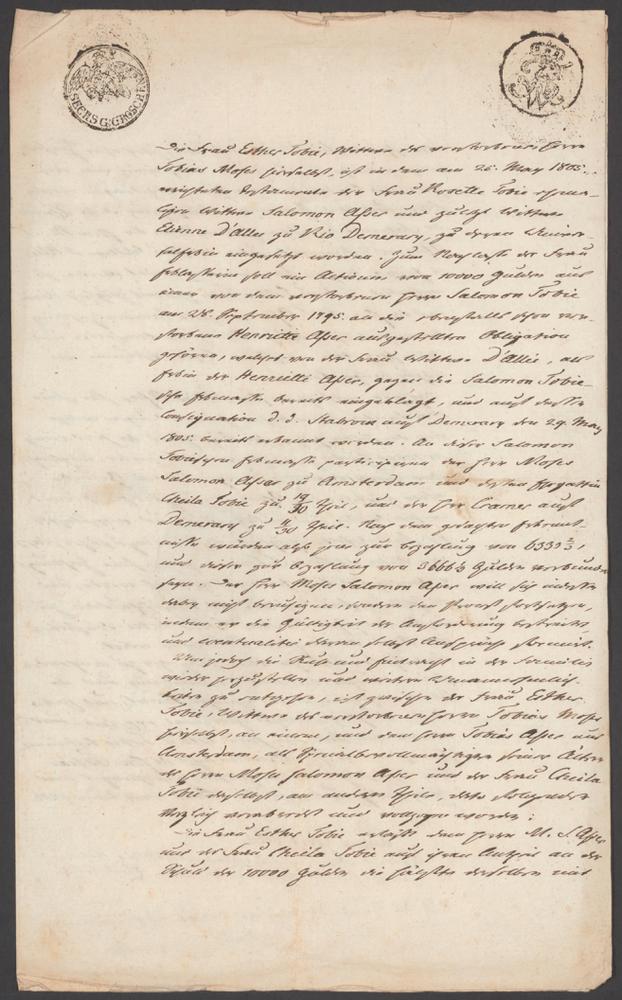 SECHS G. GROSCHEN
Die Frau Esther Tobie, Wittwe des verstorbenen Herrn
Tobias Moses hierselbst, ist in dem am 26. May 1805.
errichteten Testamente der Frau Rosette Tobie
Wittwe Salomon Asser und zuletzt Wittwe
Etienne D'Allée zu Rio Demerary, zu deren
eingesetzt worden. Zum Nachlasse der Frau
soll ein Activum von 10000 Gulden aus
einer von dem verstorbenen Herrn Salomon Tobie
am 28. September 1795. an die ebenfalls schon ver-
storbene Henriette Asser ausgestellten Obligation
gehören, welches von der Frau Wittwe D'Allée, als
Erbin der Henriette Asser, gegen die Salomon Tobie-
sche bereits eingeklagt, und auch
Consignation d. d. Stabroek auf Demerary den 29. May
1805. bereits erkannt worden. An dieser Salomon
participiren der Herr Moses
Salomon Asser zu Amsterdam und dessen Ehegattin
Cheila Tobie zu 19/30 Theil, und der Herr Cramer auf
Demerary zu 11/30 Theil. Nach dem
würden also jene zur Bezahlung von 6333 1/3,
und dieser zur Bezahlung von 3666 2/3 Gulden verbunden
seyn. Der Herr Moses Salomon Asser will sich indessen
dabey nicht beruhigen, sondern den Process fortsetzen,
indem er die Gültigkeit der Anforderung bestreitet
und eventualiter daran selbst Anspruch formirt.
Um jedoch die Ruhe und Eintracht in der Familie
wieder herzustellen und weitern
zu entgehen, ist zwischen der Frau Esther
Tobie, Wittwe des verstorbenen Herrn Tobias Moses
hierselbst, an einem, und dem Herrn Tobias Asser aus
Amsterdam, als Specialbevollmächtigten seiner Eltern
des Herrn Moses Salomon Asser und der Frau Cheila
Tobie daselbst, am andern Theile, dato folgender
Vergleich verabredet und vollzogen worden:
Die Frau Esther Tobie erläßt dem Herrn M. S. Asser
und der Frau Cheila Tobie auf ihren Antheil an der
Schuld der 10000 Gulden die Hälfte derselben mit